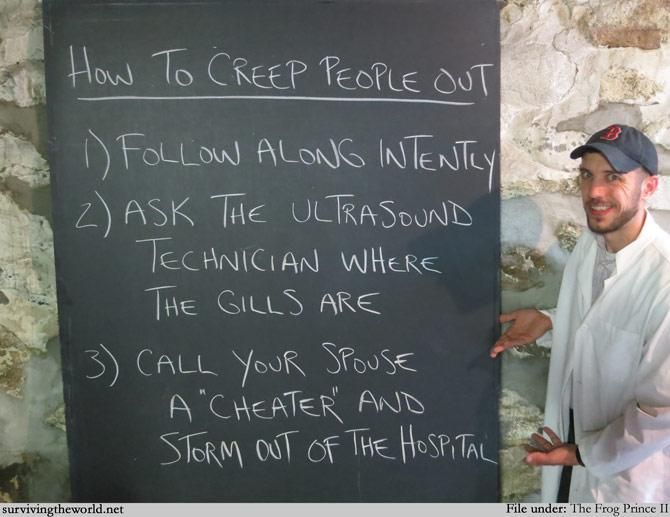 HOW TO CREEP PEOPLE OUT
1) FOLLOW ALONG INTENTLY
2) ASK THE ULTRASOUND
TECHNICIAN WHERE
THE GILLS ARE
3) CALL YOUR SPOUSE
A "CHEATER" AND
STORM OUT OF THE HOSPITAL
B
survivingtheworld.net
File under: The Frog Prince II